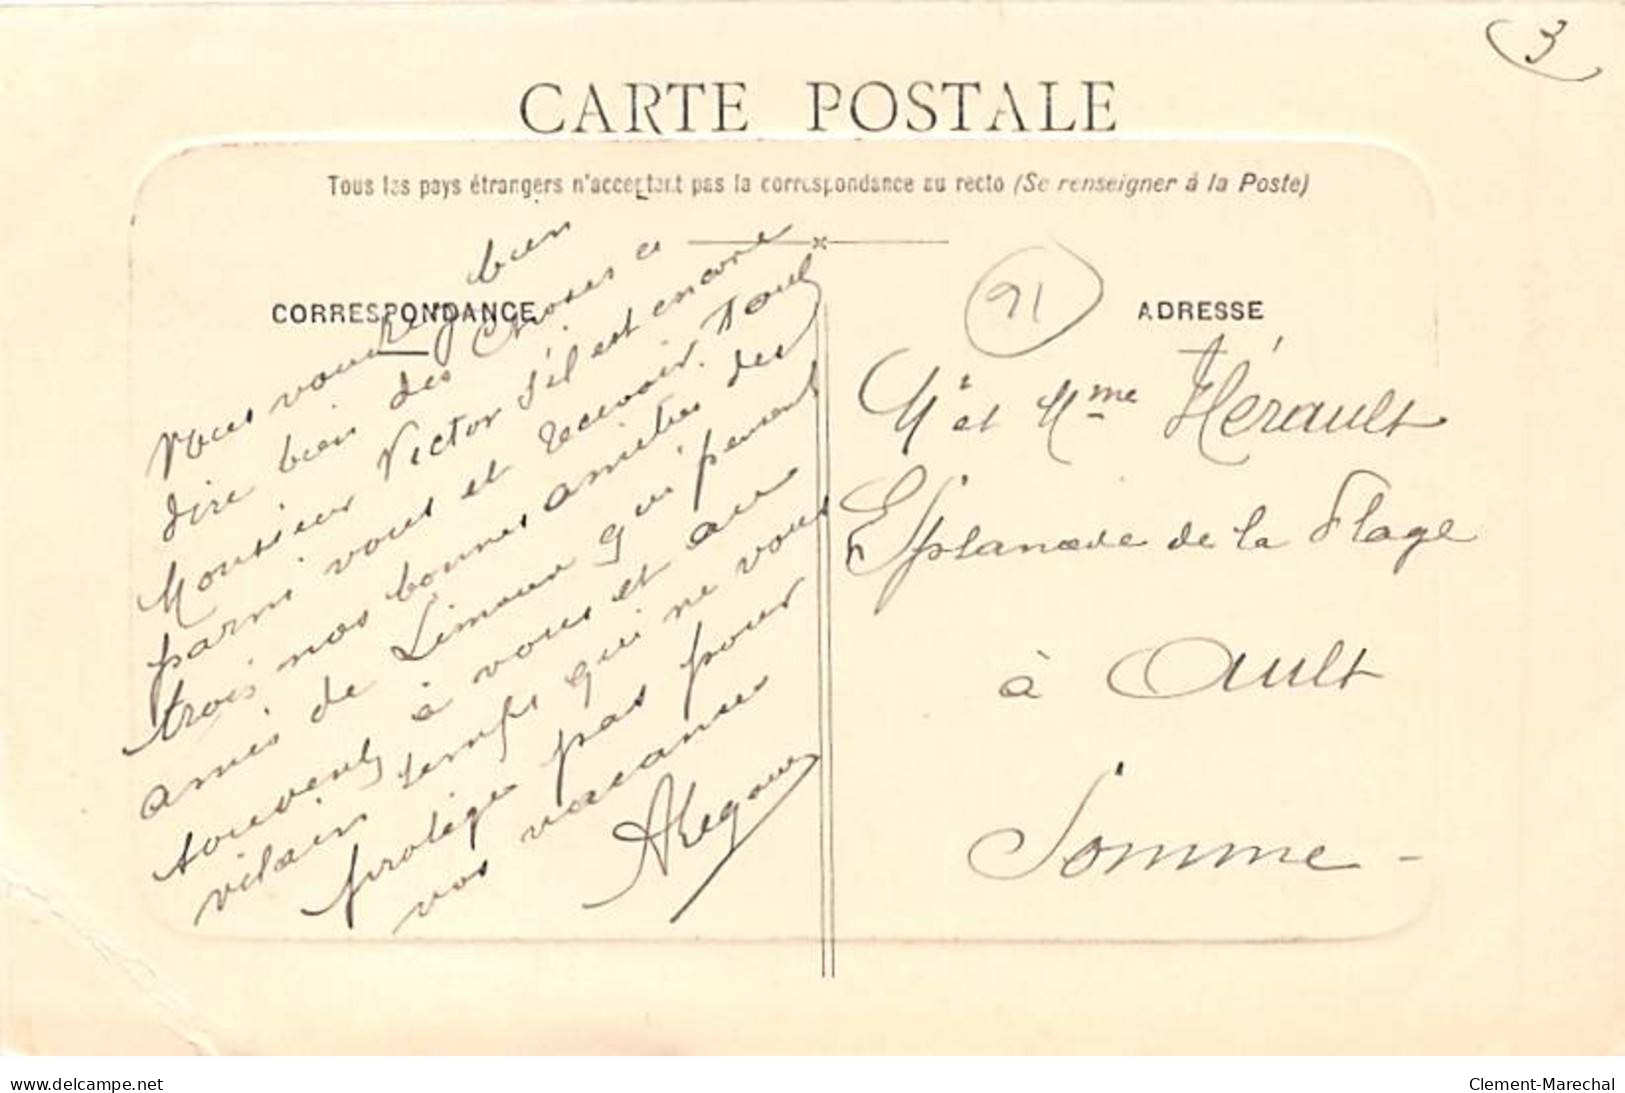 3
CARTE POSTALE
Tous les pays étrangers n'acceptent pas la correspondance au recto (Se renseigner à la Poste)
CORRESPONDANCE
91
ADRESSE
Vous voudrez bien
dire bien des choses a
Monsieur Victor s'il est encore
parmi vous et recevoir tous
trois nos bonnes amitiés des
amis de Limoux qui pensent
souvent à vous et au
vilain temps qui ne vous
protège pas pour
vos vacances
Mr et Mme Hérault
Esplanade de la Plage
à Ault
Somme -
www.delcampe.net
Clement-Marechal